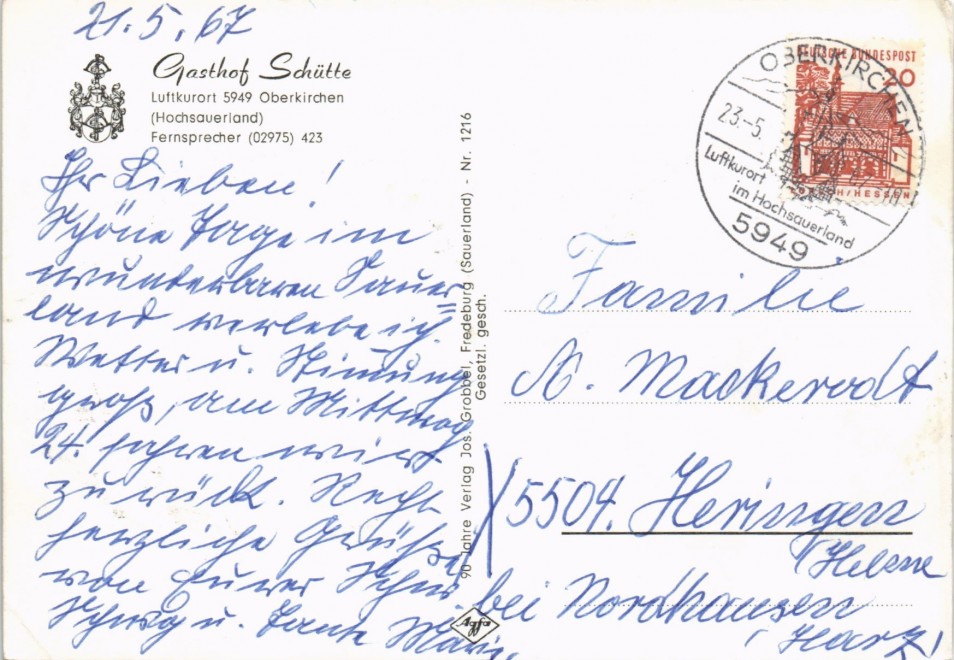 21.5.67
Gasthof Schütte
Luftkurort 5949 Oberkirchen
(Hochsauerland)
Fernsprecher (02975) 423
Ihr Lieben!
Schöne Tage im
wunderbaren Sauer=
land verlebe ich.
Wetter u. Stimmung
groß, am Mittwoch
24. fahren wir
zurück. Recht
herzliche Grüße
von Eurer
Schwg u. Tante Marie.
90 Jahre Verlag Jos. Grobbel, Fredeburg (Sauerland) - Nr. 1216
Gesetzl. gesch.
Agfa
DEUTSCHE BUNDESPOST
20
H/HESSEN
OBERKIRCHEN
23.-5.
Luftkurort
im Hochsauerland
5949
Familie
A. Mackerodt
5504. Heringen
/Helme
bei Nordhausen
(Harz)